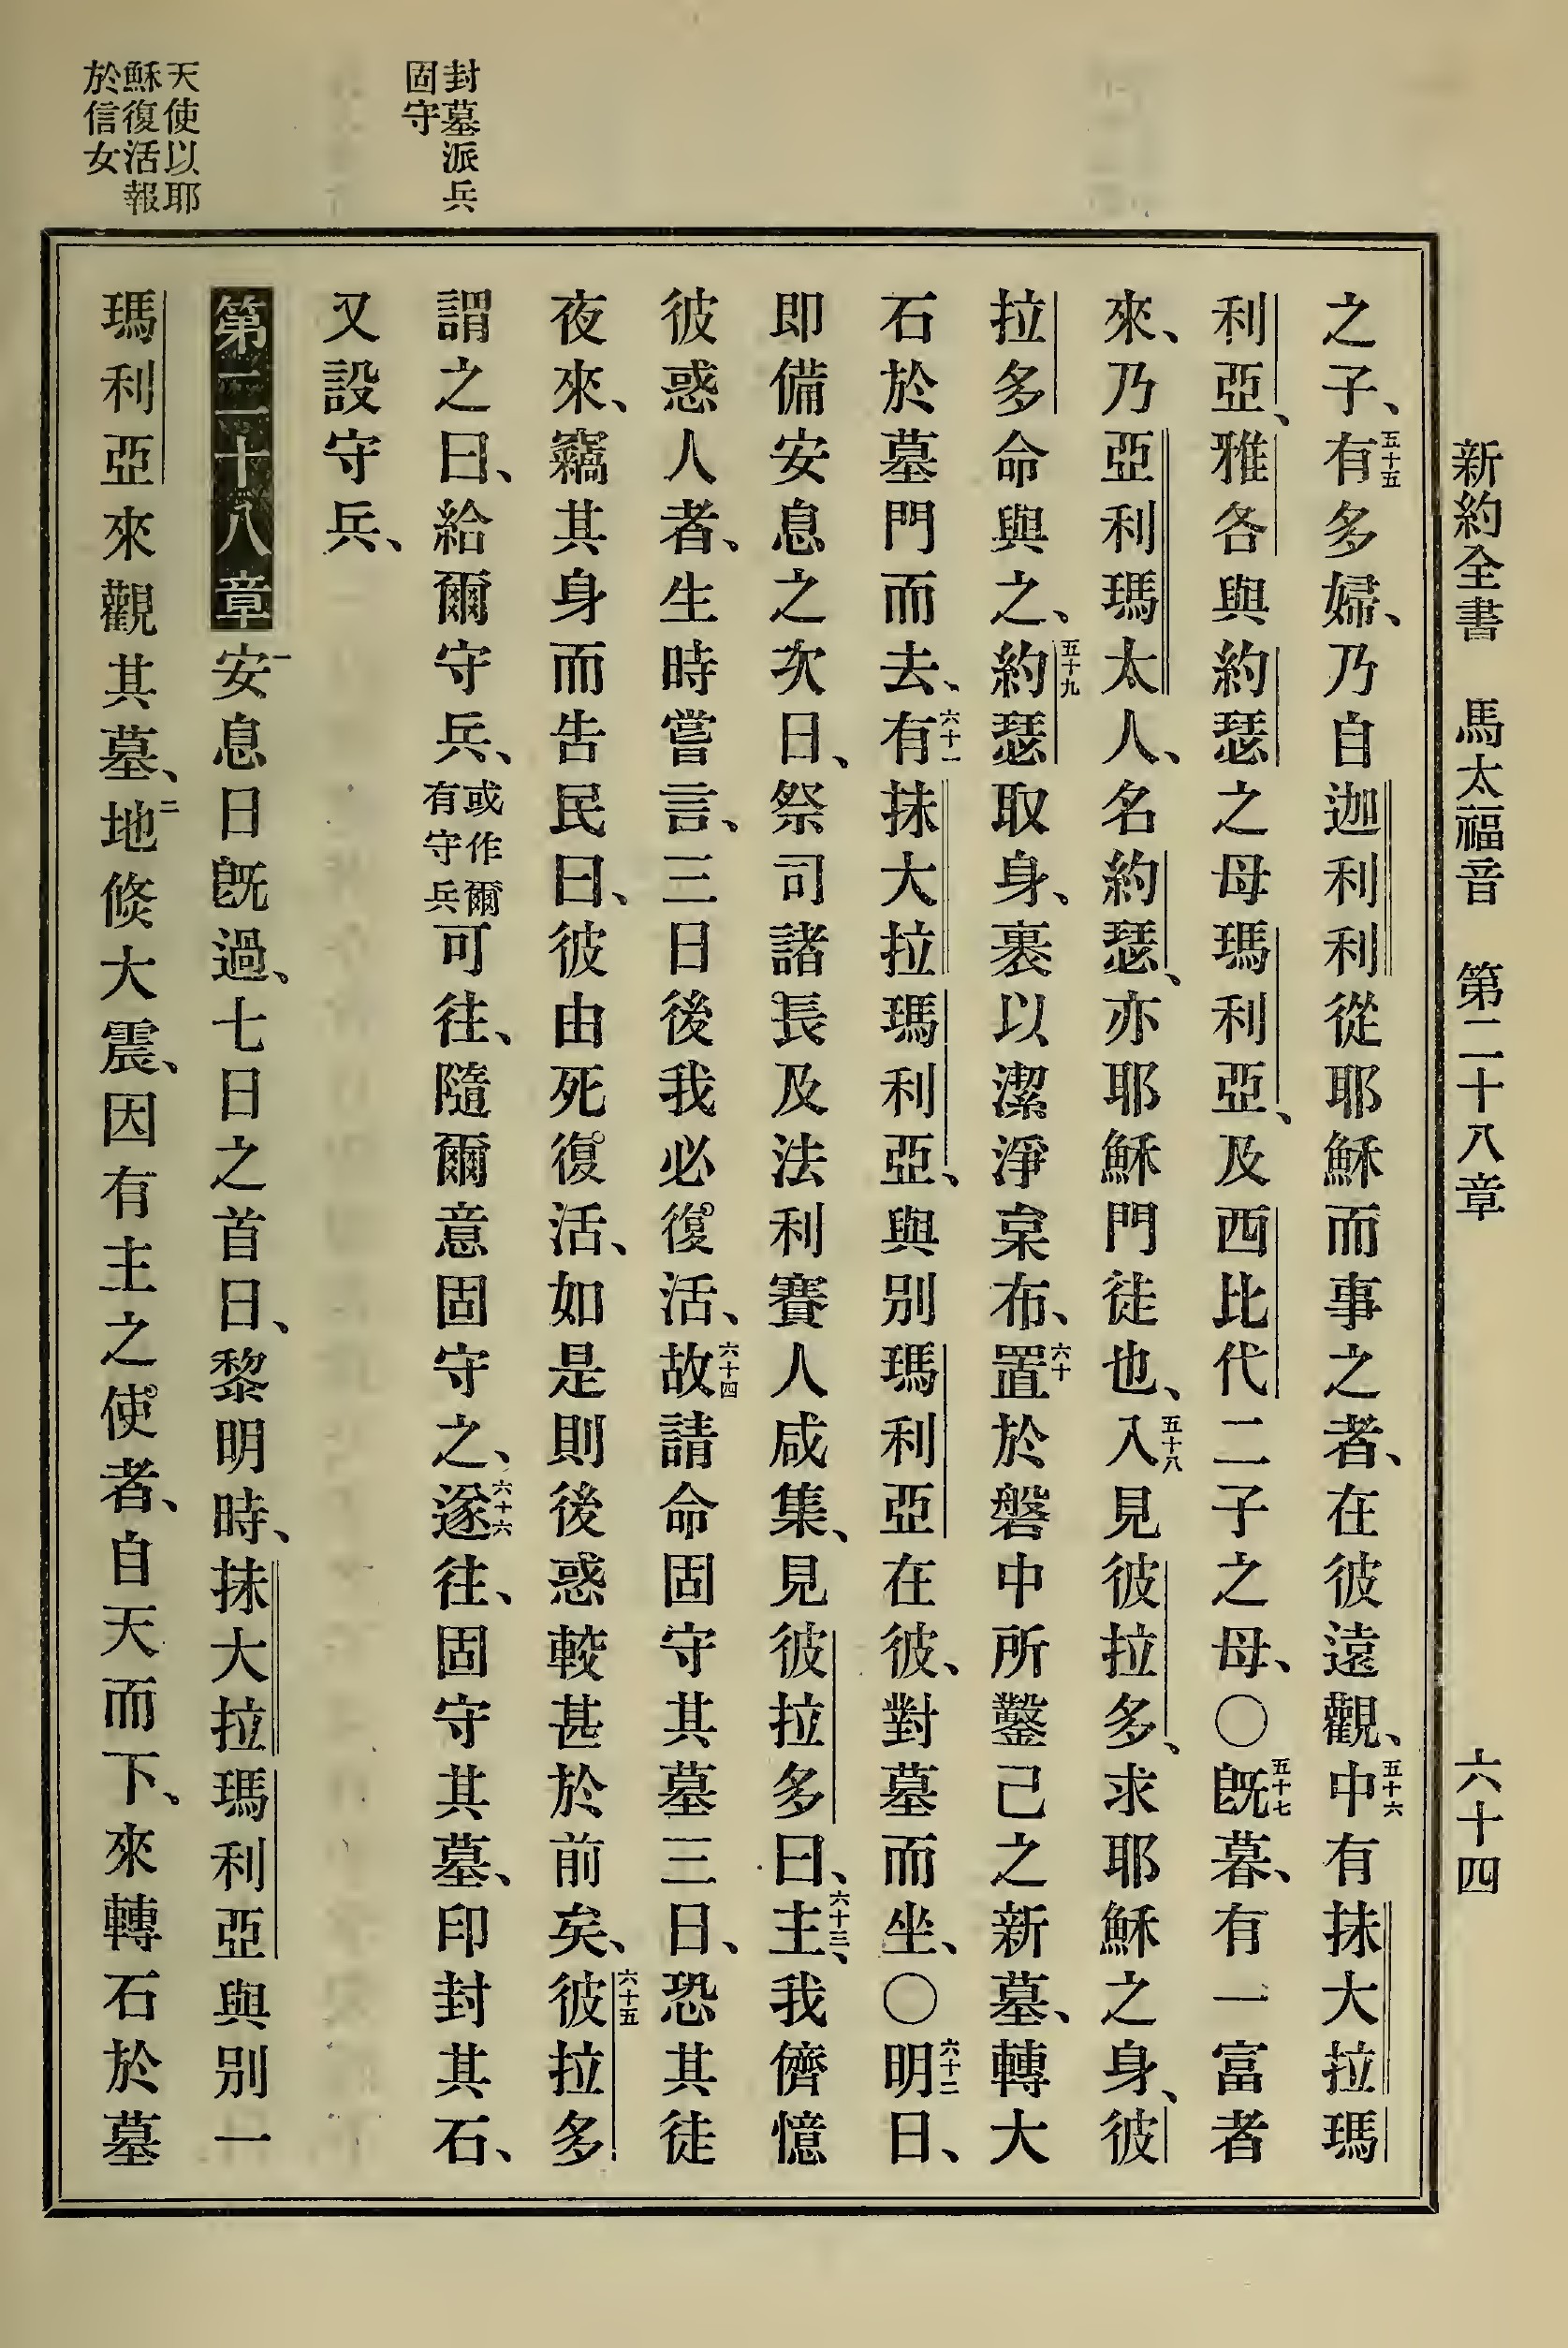 新約全書 馬太福音 第二十八章 六十四
之子、五十五有多婦、乃自迦利利從耶穌而事之者、在彼遠觀、五十六中有抹大拉瑪
利亞、雅各與約瑟之母瑪利亞、及西比代二子之母、〇五十七旣暮、有一富者
來、乃亞利瑪太人、名約瑟、亦耶穌門徒也、五十八入見彼拉多、求耶穌之身、彼
拉多命與之、五十九約瑟取身、裹以潔淨枲布、六十置於磐中所鑿己之新墓、轉大
石於墓門而去、六十一有抹大拉瑪利亞、與別瑪利亞在彼、對墓而坐、〇六十二明日、
即備安息之次日、祭司諸長及法利賽人咸集、見彼拉多曰、六十三主、我儕憶
彼惑人者、生時嘗言、三日後我必復活、六十四故請命固守其墓三日、恐其徒
夜來、竊其身而告民曰、彼由死復活、如是則後惑較甚於前矣、六十五彼拉多
謂之曰、給爾守兵、或作爾有守兵可往、隨爾意固守之、六十六遂往、固守其墓、印封其石、
又設守兵、
第二十八章 一安息日旣過、七日之首日、黎明時、抹大拉瑪利亞與別一
瑪利亞來觀其墓、二地倐大震、因有主之使者、自天而下、來轉石於墓
封墓派兵
固守
天使以耶
穌復活報
於信女